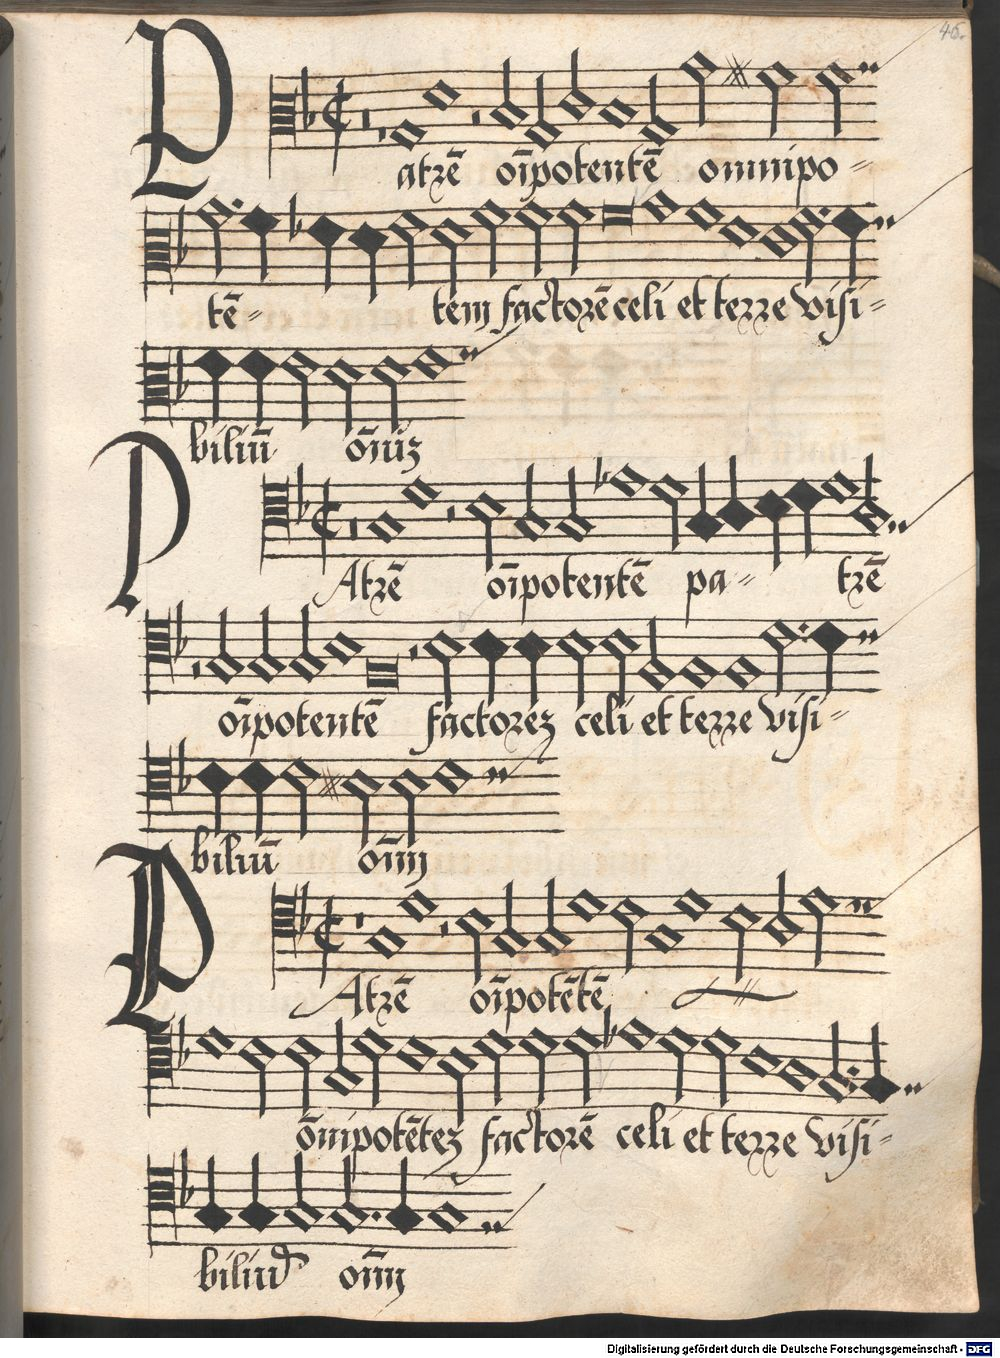 46.
Patrē oīpotentē omnipo=
tē= tem factorē celi et terre visi=
biliū oīnīuz
PAtrē oīpotentē pa= trē
oīpotentē factorez celi et terre visi=
biliū oīm
PAtrē oīpotētē
oīnipotētez factorē celi et terre visi=
biliū oīm
Digitalisierung gefördert durch die Deutsche Forschungsgemeinschaft - DFG